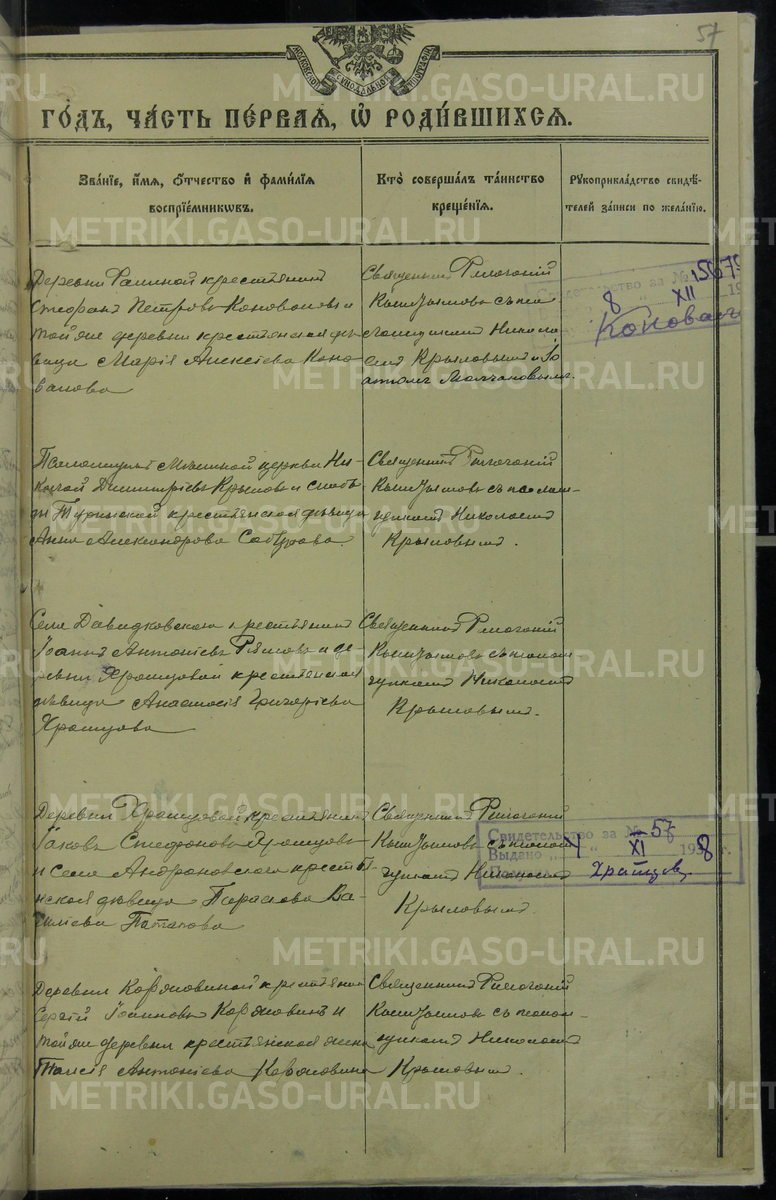 57
МОСКОВСКОЙ СѴНОДАЛЬНОЙ ТѴПОГРАФІИ
ГО́ДЪ, ЧА́СТЬ ПЕ́РВАЯ, Ѡ҆ РОДИ́ВШИХСЯ.
Зва́нїе, и҆́мя, ѻ҆́тчество и҆ фами́лїя
воспрїе́мникѡвъ.
Кто̀ соверша́лъ та́инство
креще́нїя.
Рꙋкоприкла́дство свидѣ́-
телей за́писи по жела́нїю.
Деревни крестьянинъ
Стефанъ Петровъ Коноваловъ и
той же деревни крестьянская дѣ-
вица Марія Алексіева Коно-
валова
Священникъ
съ пса-
ломщиками Никола-
емъ Крыловымъ и Іо-
анномъ Молчановымъ.
Свидетельство за №
8 XII
Коновал
Псаломщикъ мѣстной церкви Ни-
колай Димитріевъ Крыловъ и
крестьянская дѣвица
Анна Александрова
Священникъ
съ псалом-
щикомъ Николаемъ
Крыловымъ.
Села Давидковскаго крестьянинъ
Іоаннъ Антоніевъ и де-
ревни Храпцовой крестьянская
дѣвица Анастасія Григоріева
Храпцова
Священникъ
съ псалом-
щикомъ Николаемъ
Крыловымъ.
Деревни Храпцовой крестьянинъ
Іаковъ Стефановъ Храпцовъ
и села Андроновскаго кресть-
янская дѣвица Параскева Ва-
силіева Потапова
Священникъ
съ псалом-
щикомъ Николаемъ
Крыловымъ
Свидетельство за № 56
Выдано „4“ XI 1938 г.
Храпцов
Деревни Коржовиной крестьянинъ
Сергій Іоанновъ Коржовинъ и
той же деревни крестьянская жена
Таисія Антоніева Коржовина
Священникъ
съ псалом-
щикомъ Николаемъ
Крыловымъ.
METRIKI.GASO-URAL.RU